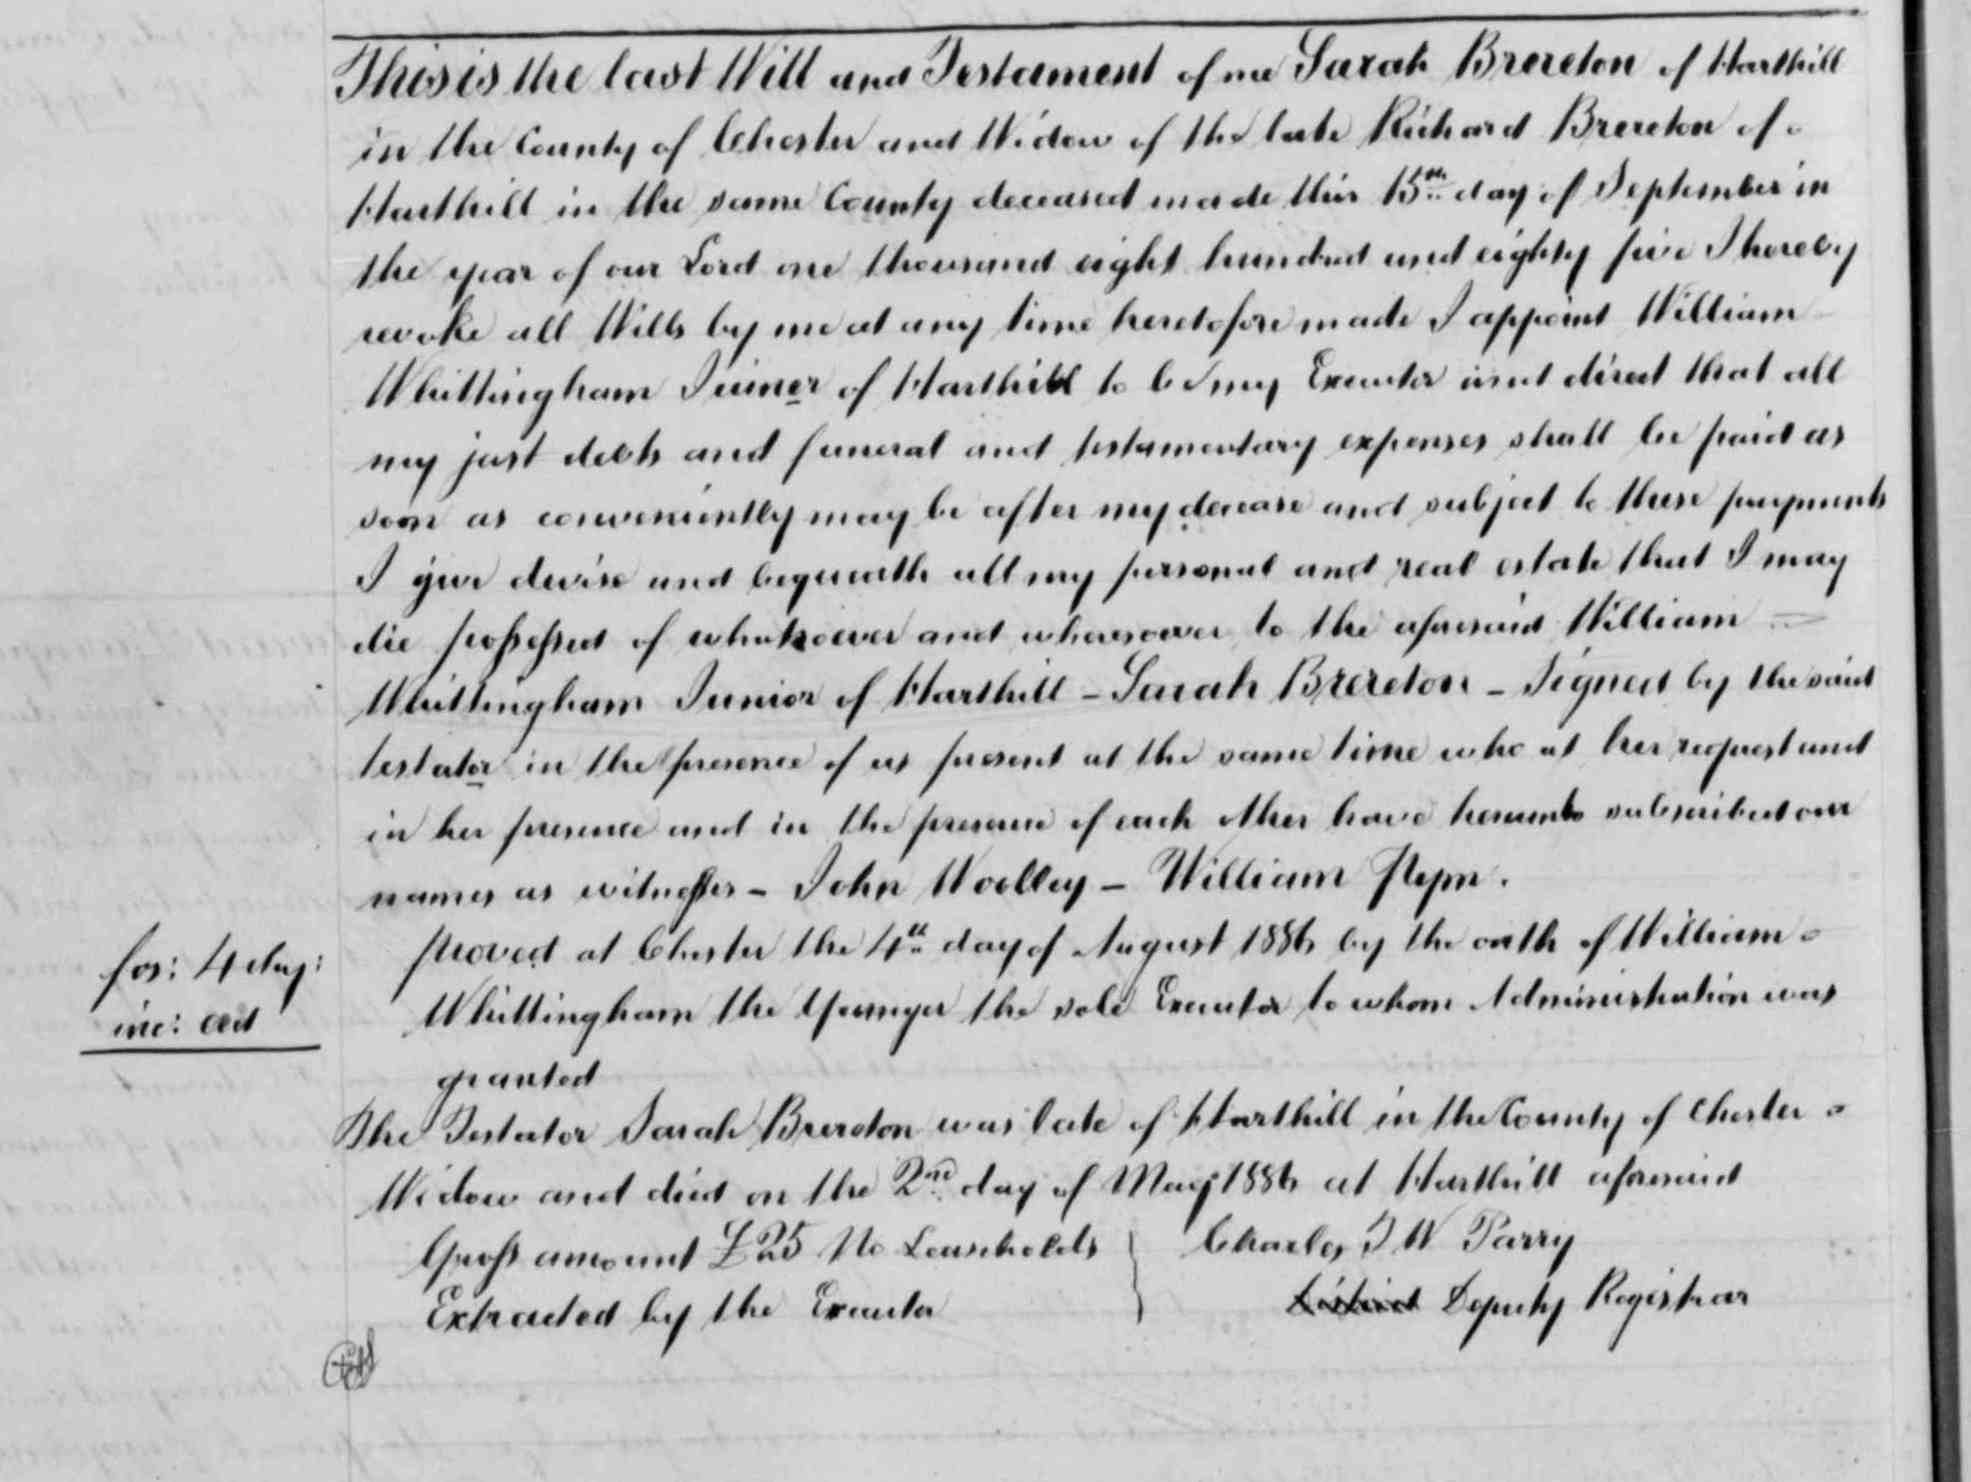 This is the last Will and Testament of me Sarah Brereton of Harthill
in the County of Chester and Widow of the late Richard Brereton of
Harthill in the same County deceased made this 15th day of September in
the year of our Lord one thousand eight hundred and eighty five I hereby
revoke all Wills by me at any time heretofore made I appoint William
Whittingham Juiner of Harthill to be my Executor and direct that all
my just debts and funeral and testamentary expenses shall be paid as
soon as conveniently may be after my decease and subject to these payments
I give devise and bequeath all my personal and real estate that I may
die possessed of whatsoever and wheresoever to the aforesaid William
Whittingham Junior of Harthill – Sarah Brereton – Signed by the said
testator in the presence of us present at the same time who at her request and
in her presence and in the presence of each other have hereunto subscribed our
names as witnesses – John Woolley – William
Proved at Chester the 4th day of August 1886 by the oath of William
fos: 4
Whittingham the Younger the sole Executor to whom Administration was
granted
The Testator Sarah Brereton was late of Harthill in the County of Chester
Widow and died on the 2nd day of May 1886 at Harthill aforesaid
Gross amount £25 No Leaseholds
Extracted by the Executor
Charles J W Parry
District Deputy Registrar